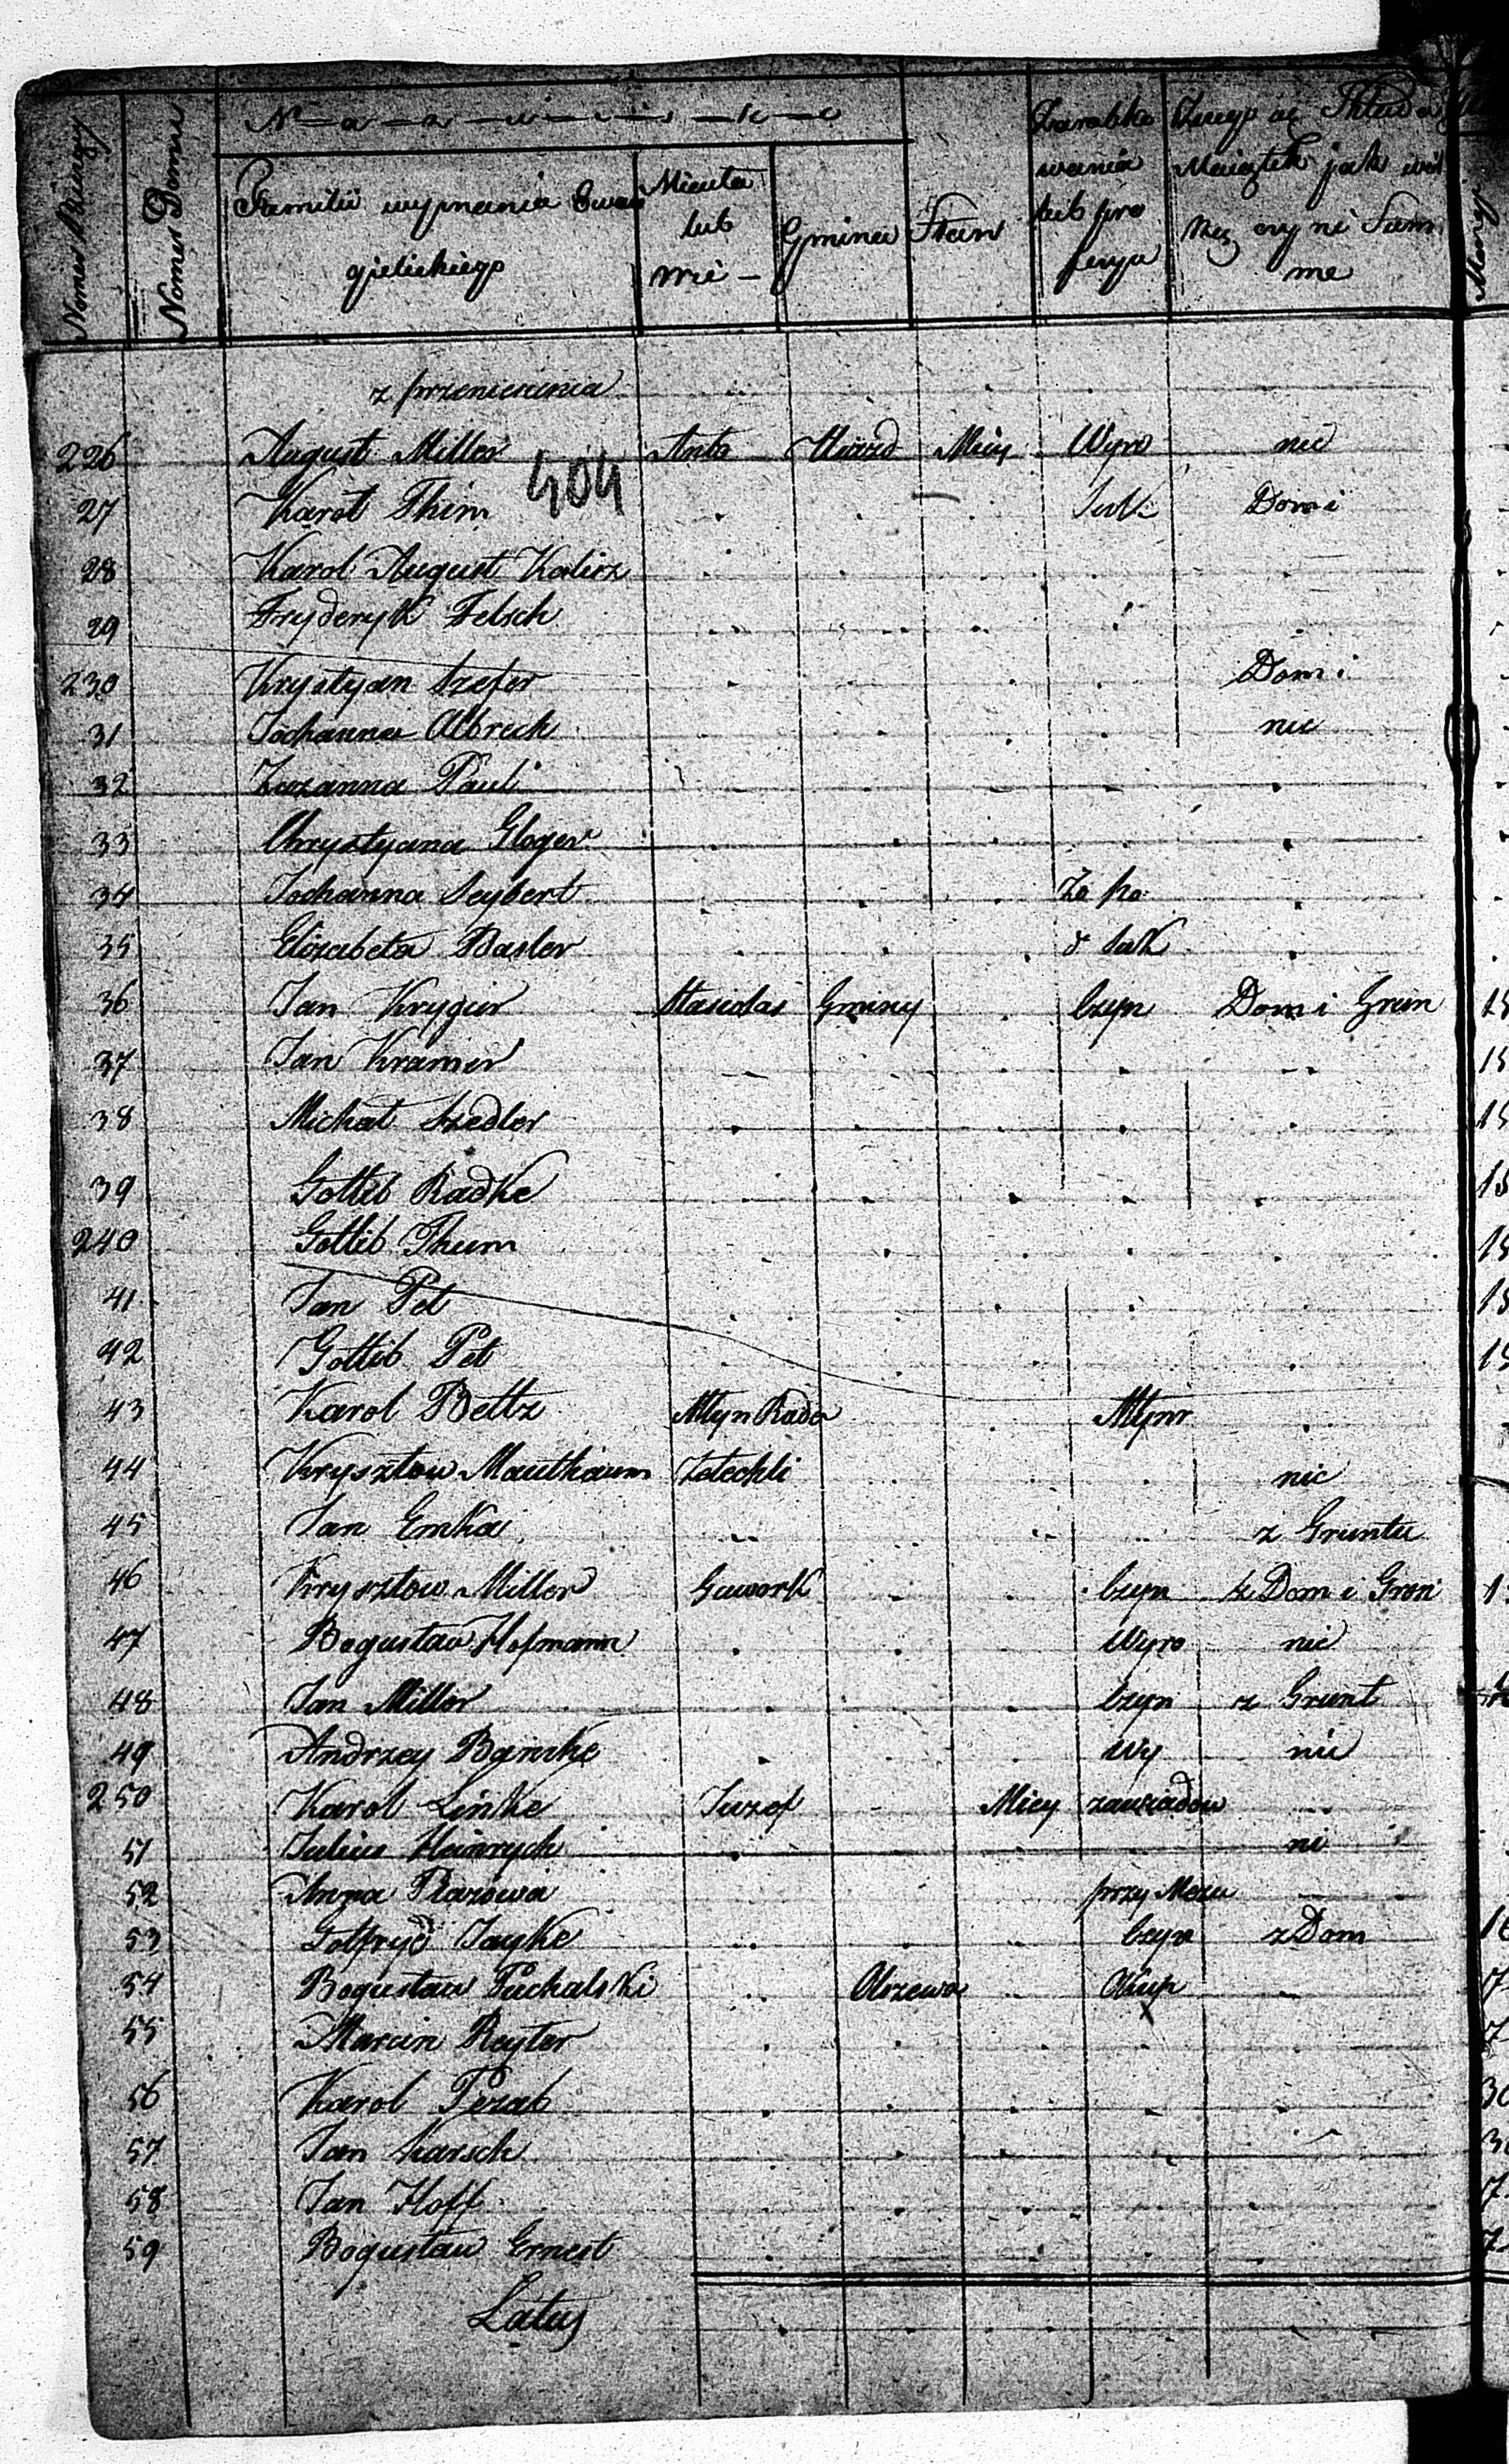 Numer Bieżący Numer Domu N-a-z-w-i-s-k-o
Familii wyznania Ewan
gielickiego
Miasta
lub
wsi
Gmina
Stan
Zarobko
wania
lub pro
fesya
Maiątek jak wiel
ki czyni Sum
ma
z przeniesienia
226 August Miller Anto Uiazd Miey Wyro nic
404
27 Karol Thim Suk: Dom i
28 Karol August Kalisz
29 Fryderyk Felsch
230 Krystyan Szefer Dom i
31 Jochanna Albrech nic
32 Zuzanna Paul
33 Chrystyana Gloger
34 Jochanna Seybert
35 Elizabeta Basler
36 Jan Krygier Stasiolas Gminy Czyn Dom i Grun
37 Jan Kramer
38 Michał Szedler
39 Gottlib Radke
240 Gottlib Thum
41 Jan Pet
42 Gottlib Pet
43 Karol Beltz Młyn Rado Młynr
44 Krysztow Mauthaum nic
45 Jan Emka z Gruntu
46 Krysztow Miller Gawork Czyn z Dom i Gron
47 Bogusław Hofmann Wyro nic
48 Jan Miller Czyn z Grunt
49 Andrzey Bamke Wy nic
250 Karol Linke Juzef Miey
51 Julius Heinrych ni
52 Anna Plazowa przy Mezu
53 Gotfryd Jayke Czyn z Dom
54 Bogusław Puchalski Olszewo Okup
55 Marcin Reyter
56 Karol Pezal
57 Jan Karsch
58 Jan Hoff
59 Bogusław Ernest
Latus